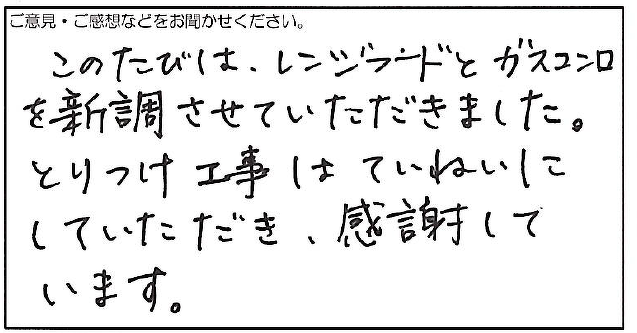 ご意見・ご感想などをお聞かせください。
このたびは、レンジフードとガスコンロ
を新調させていただきました。
とりつけ工事はていねいに
していただき、感謝して
います。